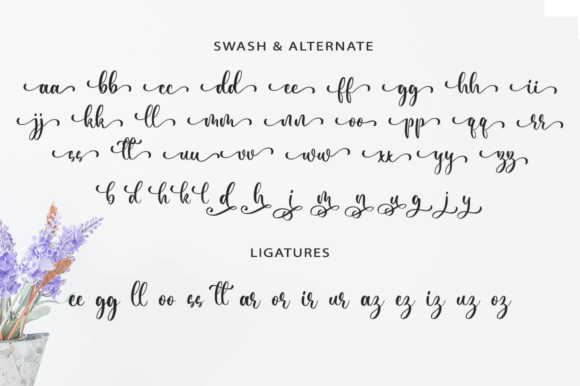 SWASH & ALTERNATE
aa bb cc dd ee ff gg hh ii
jj kk ll mm nn oo pp qq rr
ss tt uu vv ww xx yy zz
b d h k l d h i m n u g j y
LIGATURES
ee gg ll oo ss tt ar or ir ur az ez iz uz oz